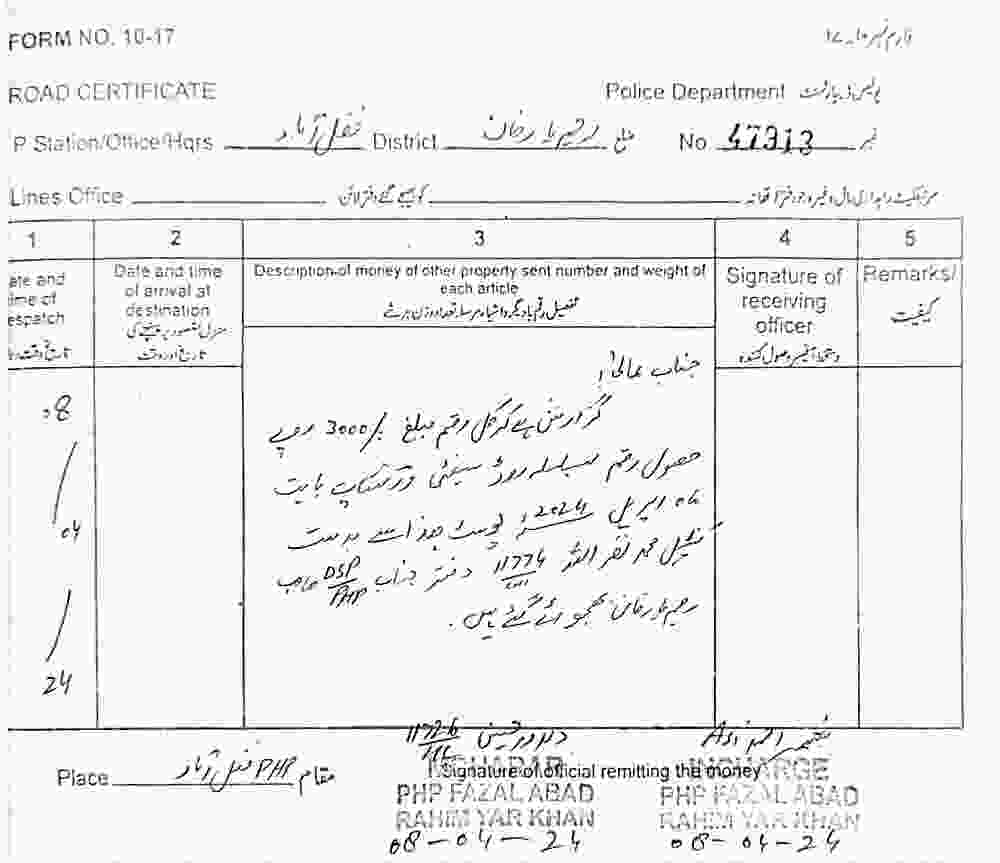 FORM NO. 10-17 فارم نمبر ۱۰۔۱۷
ROAD CERTIFICATE Police Department پولیس ڈیپارٹمنٹ
P Station/Office/Hqrs فضل آباد District رحیم یار خان ضلع No 47313 نمبر
Lines Office کو بھیجے گئے دفتر لائن سرٹیفکیٹ راہداری مال وغیرہ جو دفتر / تھانہ
1 2 3 4 5
ate and
ime of
espatch
تاریخ وقت
Date and time
of arrival at
destination
منزل مقصود پر پہنچنے کی
تاریخ اور وقت
Description of money of other property sent number and weight of
each article
تفصیل رقم یا دیگر اشیاء مرسلہ تعداد وزن ہر شے
Signature of
receiving
officer
دستخط آفیسر وصول کنندہ
Remarks/
کیفیت
08
/
04
/
24
جناب عالی!
گزارش ہے کہ کل رقم مبلغ 3000/- روپے
حصول رقم بسلسلہ روڈ سیفٹی ورکشاپ بابت
ماہ اپریل 2024ء پوسٹ ہذا سے بدست
کنسٹیبل محمد ظفر اللہ 11774 دفتر جناب DSP/PHP صاحب
رحیم یار خان بھجوائے گئے ہیں۔
11776 حسین
ASI
Place PHP فضل آباد مقام
MOHARAR
Signature of official remitting the money
INCHARGE
PHP FAZAL ABAD
RAHIM YAR KHAN
08-04-24
PHP FAZAL ABAD
RAHIM YAR KHAN
08-04-24